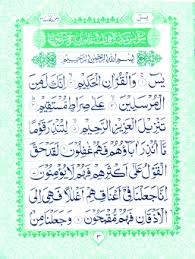 بِسْمِ اللّٰهِ الرَّحْمٰنِ الرَّحِيْمِ
يٰسٓ وَالْقُرْاٰنِ الْحَكِيْمِ اِنَّكَ لَمِنَ
الْمُرْسَلِيْنَ عَلٰى صِرَاطٍ مُّسْتَقِيْمٍ
تَنْزِيْلَ الْعَزِيْزِ الرَّحِيْمِ لِتُنْذِرَ قَوْمًا
مَّآ اُنْذِرَ اٰبَآؤُهُمْ فَهُمْ غٰفِلُوْنَ لَقَدْ حَقَّ
الْقَوْلُ عَلٰٓى اَكْثَرِهِمْ فَهُمْ لَا يُؤْمِنُوْنَ
اِنَّا جَعَلْنَا فِيْٓ اَعْنَاقِهِمْ اَغْلٰلًا فَهِيَ اِلَى
الْاَذْقَانِ فَهُمْ مُّقْمَحُوْنَ وَجَعَلْنَا مِنْ